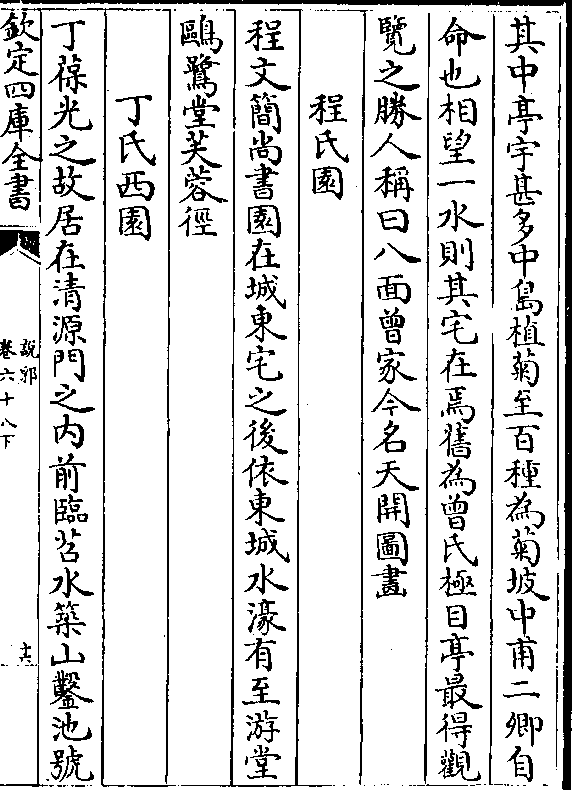 其中亭宇甚多中島植菊至百種為菊坡中甫二卿自
命也相望一水則其宅在焉舊為曾氏極目亭最得觀
覽之勝人稱曰八面曾家今名天開圖畫
程氏園
程文簡尚書園在城東宅之後依東城水濠有至游堂
鷗鷺堂芙蓉徑
丁氏西園
丁葆光之故居在清源門之內前臨苕水築山鑿池號
欽定四庫全書
說郛
卷六十八下
十六